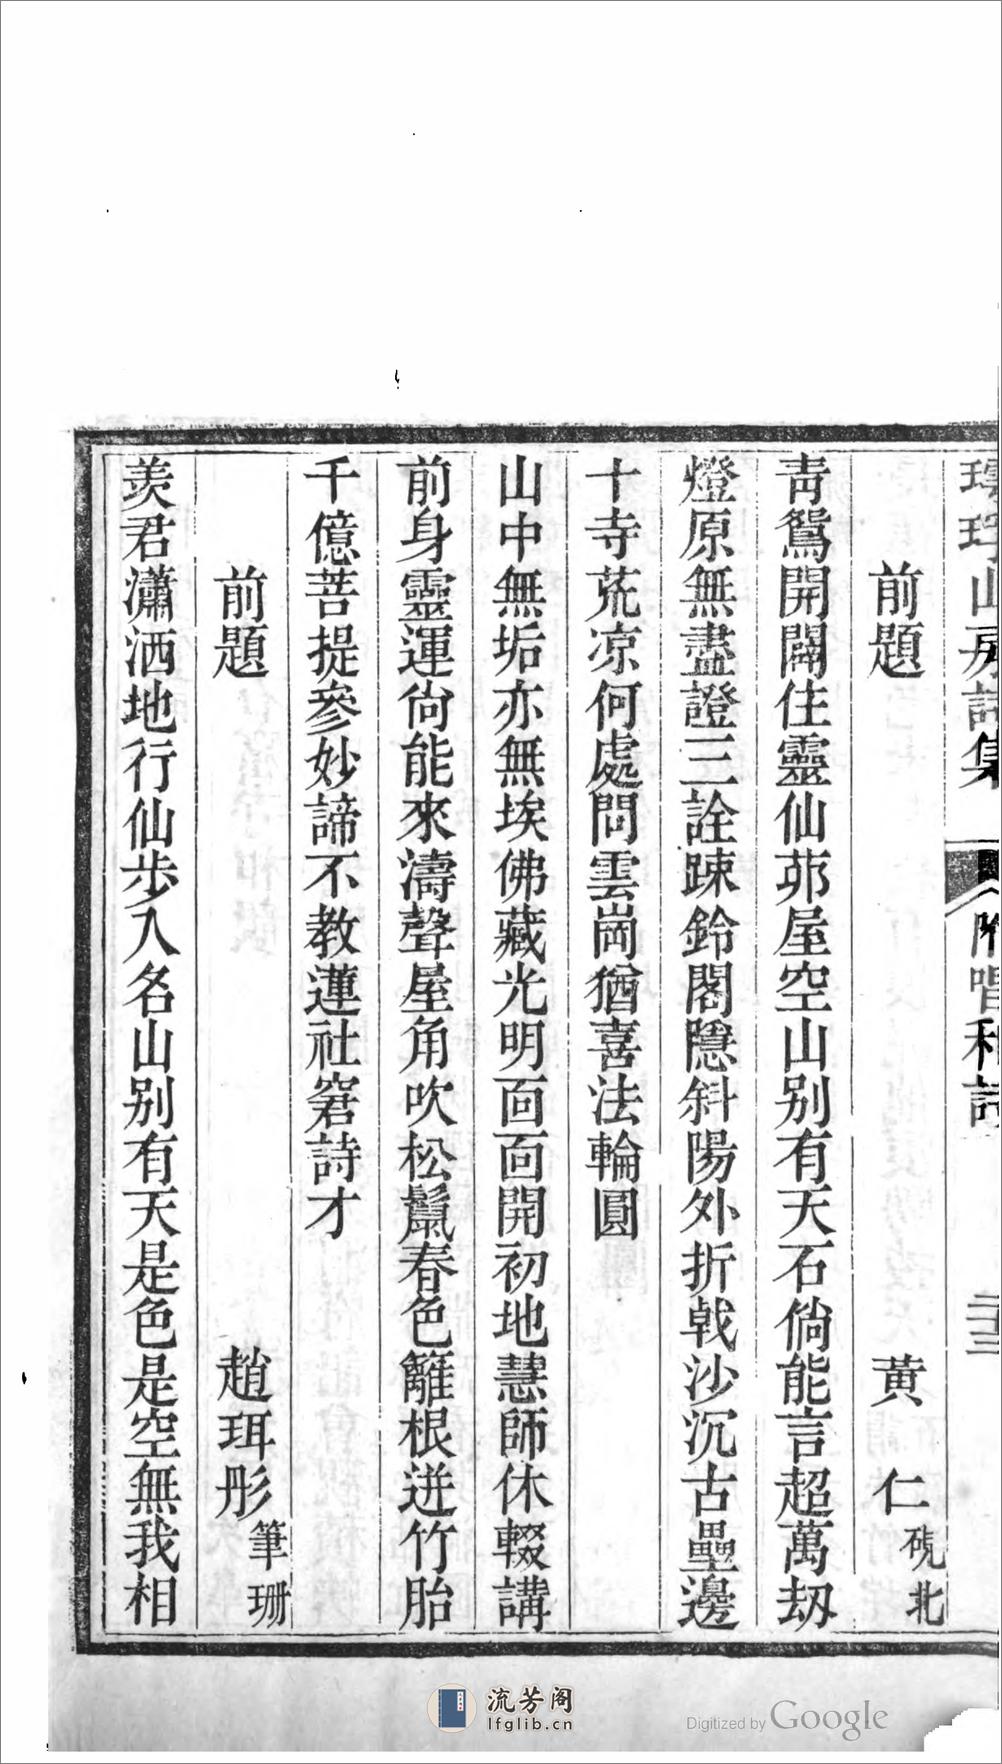 山房詩集 附唱和詩 二十三
前題 黄仁硯北
青鴛開闢住靈仙茆屋空山别有天石倘能言超萬刼
燈原無盡證三詮踈鈴閣隱斜陽外折戟沙沉古壘邊
十寺荒凉何處問雲崗猶喜法輪圓
山中無垢亦無埃佛藏光明面面開初地慧師休輟講
前身靈運尙能來濤聲屋角吹松鬣春色籬根迸竹胎
千億菩提參妙諦不教蓮社窘詩才
前題 趙珥彤筆珊
羡君瀟洒地行仙步入名山别有天是色是空無我相
流芳阁
lfglib.cn
Digitized by Google